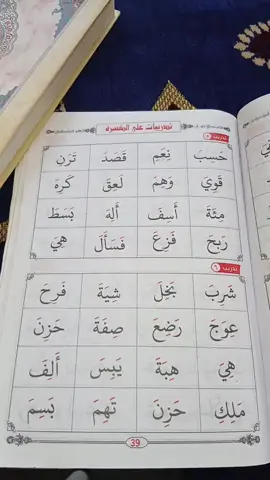 تدريبات على الكسرة
تدريب
حَسِبَ نِعَمِ قَصَدَ تَرَنِ
قَوِيَ وَهِمَ لَعِقَ كَرِهَ
مِئَةَ أَسِفَ أَلِهَ بَسَطَ
رَبِحَ فَزِعَ فَسَأَلَ هِيَ
تدريب
شَرِبَ بَخِلَ شِيَةَ فَرِحَ
عِوَجَ رَضِعَ صِفَةَ حَزِنَ
هِيَ هِبَةَ يَبِسَ أَلِفَ
مَلِكِ حَزِنَ تَهِمَ بَسِمَ
39